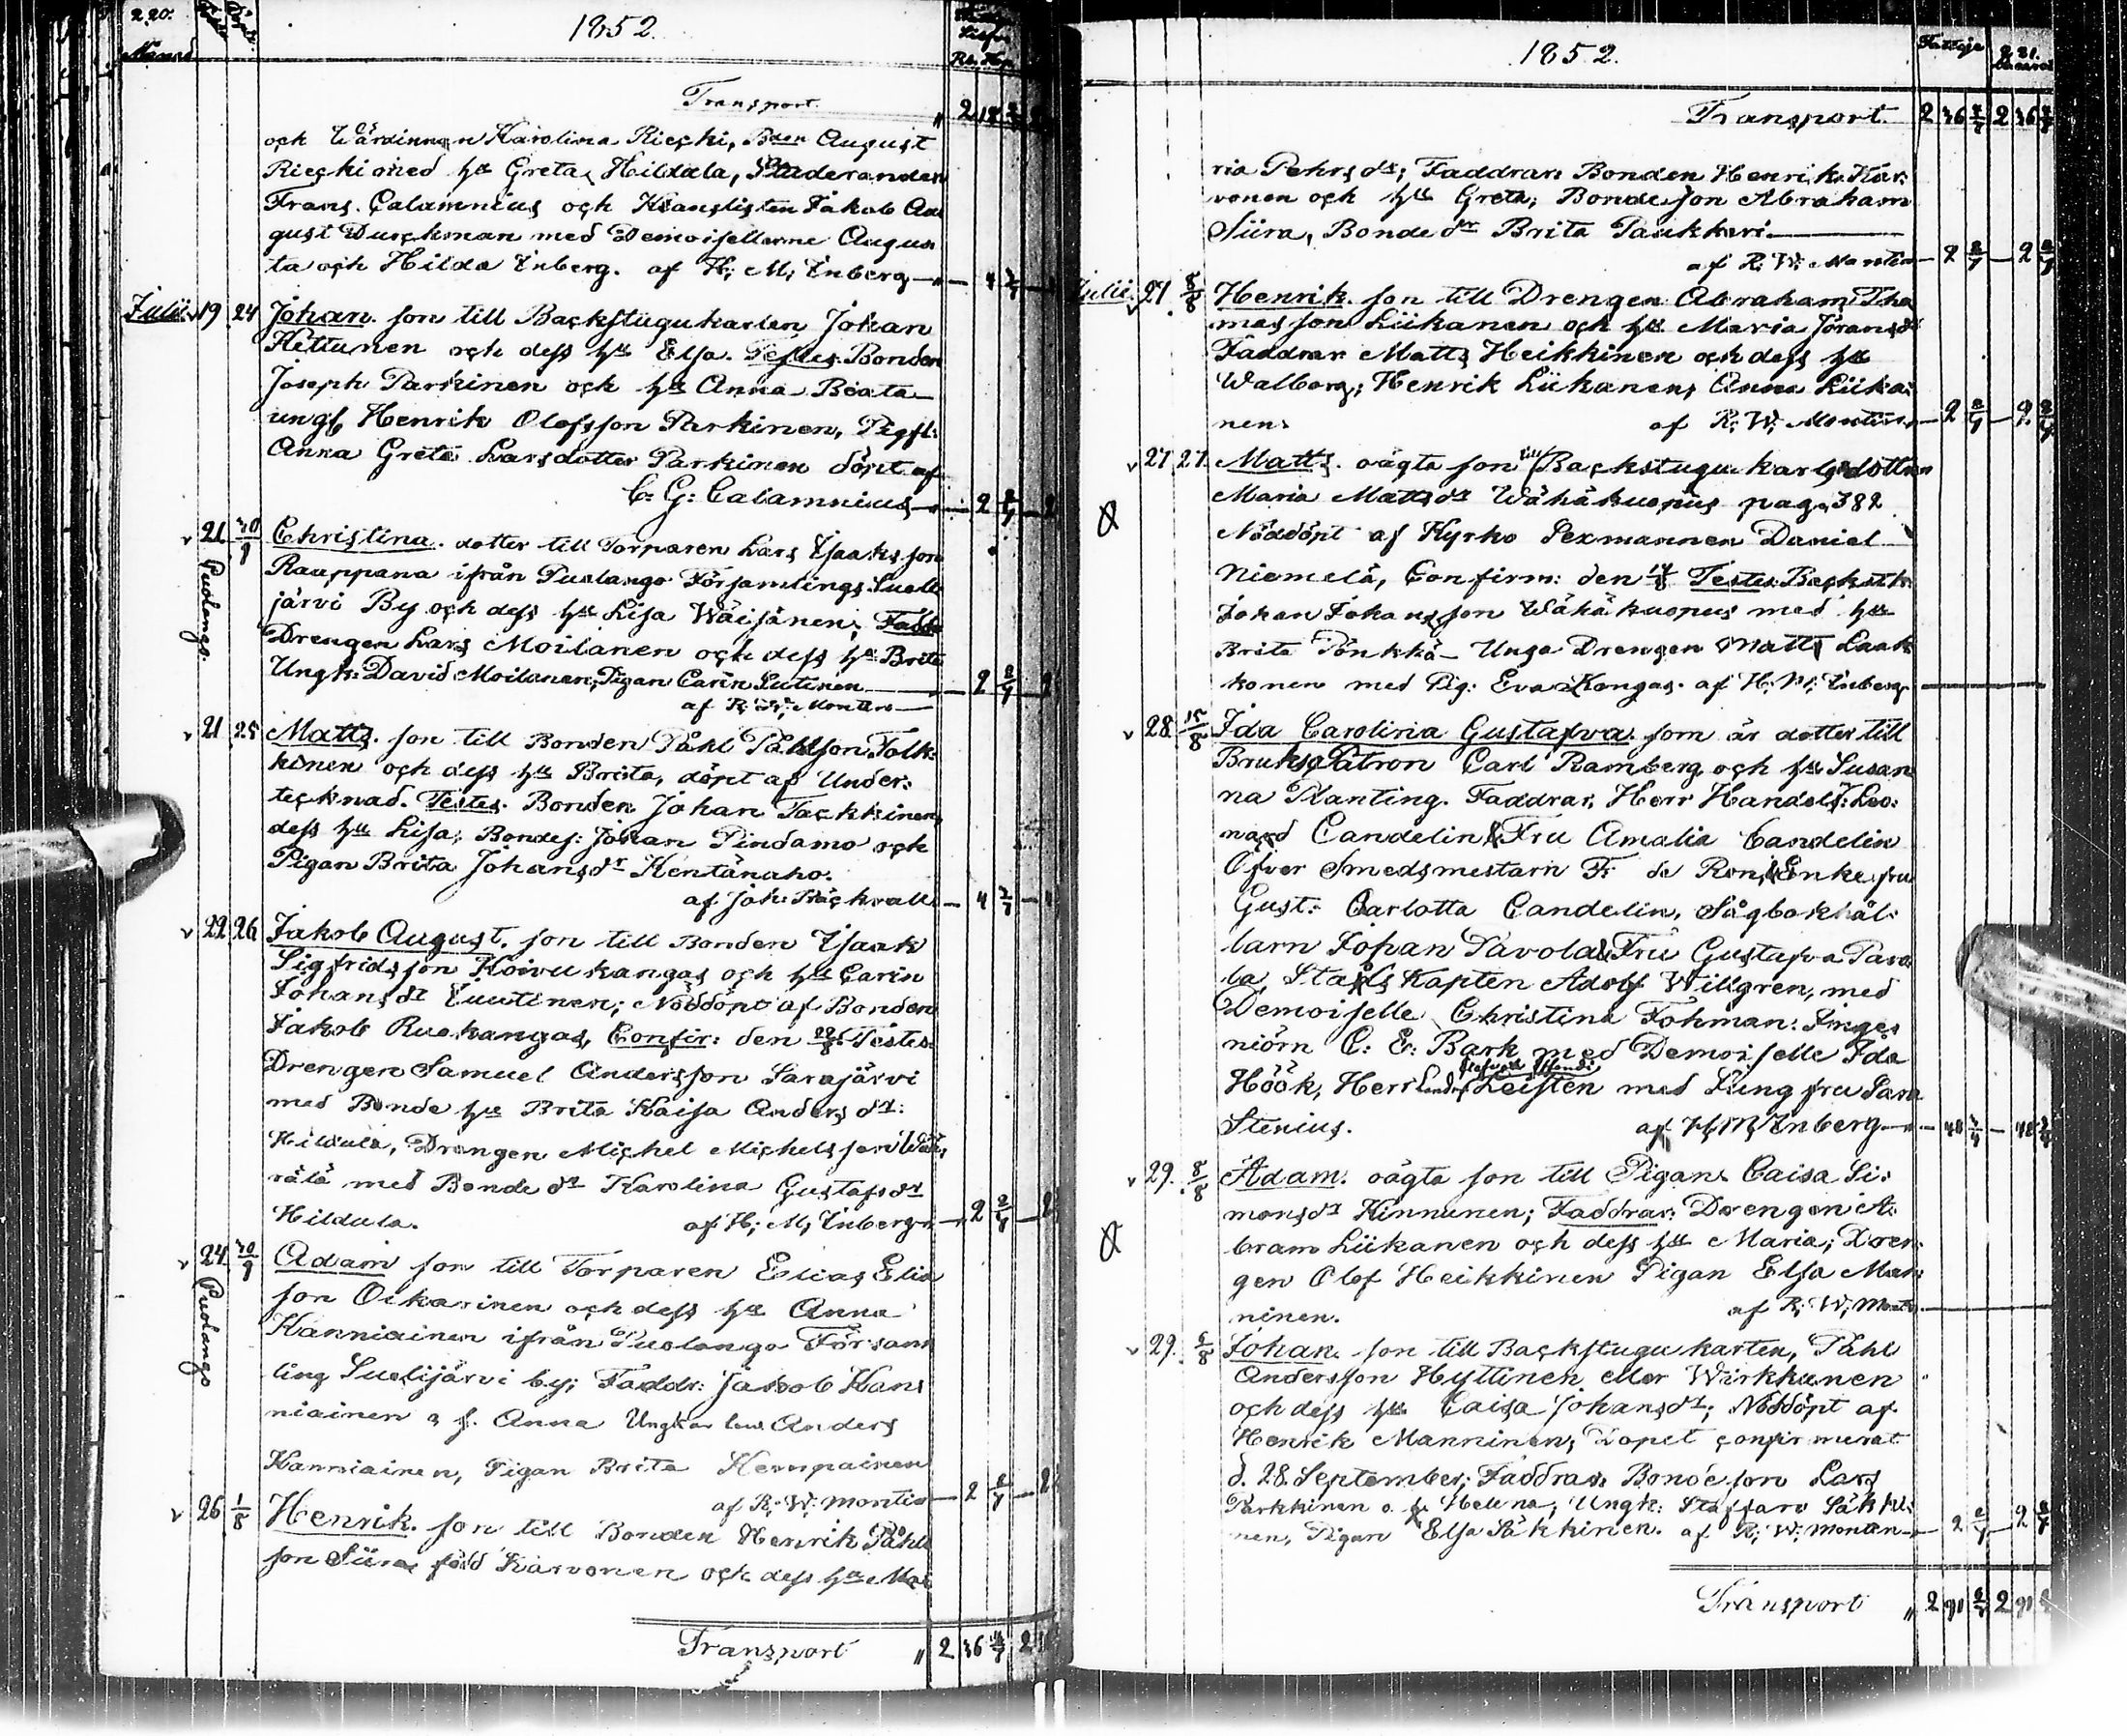 220.
1852.
Transport. " 2 18
och Wärdinnan Karolina Riecki, Bden August
Riecki med hu Greta, Hildula, Studeranden
Frans Calamnius och Kanslisten Jakob Au
gust Durchman med Demoisellerne Augus
ta och Hilda Enberg. af H: M: Enberg — 4 2/7
Julii 19 24 Johan. son till Backstugukarlen Johan
Kettunen och dess hu Elsa. Testes Bonden
Joseph Parkinen och hu Anna Beata
ungk Henrik Olofsson Parkinen, Pigfl:
Anna Greta Larsdotter Parkinen döpt af
C: G: Calamnius — 2 2/7 — 2
21 Christina. dotter till Torparen Lars Isaksson
Rauppana ifrån Puolango Församlings Suoli
järvi By och dess hu Lisa Wäisänen; Fadd
Drengen Lars Moilanen och dess hu Brita
Ungk: David Moilanen, Pigan Carin Lutinen — 2 2/7 2
af R: W: Montin —
Puolango.
21 25 Matts. son till Bonden Påhl Påhlsson Tolk-
kinen och dess hu Brita, döpt af Under:
tecknad. Testes. Bonden Johan Tackkinen
dess hu Lisa; Bondes: Johan Pindamo och
Pigan Brita Johansdr Kentänaho.
af Joh: Fräckvall — 4 2/7
22 26 Jakob August. son till Bonden Isaak
Sigfridsson Koivukangas och hu Carin
Johansdr Luutinen; Nöddöpt af Bonden
Jakob Ruokangas, Confir: den 22/8. Testes:
Drengen Samuel Andersson Sarajärvi
med Bonde hu Brita Kaisa Andersdr:
Hildula, Drengen Michel Michelsson Wää
rälä med Bonde dr Karolina Gustafsdr
Hildula. af H: M: Enberg — 2 2/7 — 2
24 Adam son till Torparen Elias Elia
son Oikarinen och dess hu Anna
Kanniainen ifrån Puolango Försam
ling Suolijärvi by; Faddr: Jakob Kan
niainen o h. Anna Ungkar Anders
Kanniainen, Pigan Brita Kemppainen
af R: W: Montin — 2 2/7 — 2
Puolango
26 1/8 Henrik. son till Bonden Henrik Påhls
son Siira född Karvonen och dess hu Ma
Transport " 2 36 4/7 2
1852.
221.
Transport. 2 36 4/7 2 36 4/7
ria Pehrsdr; Faddrar: Bonden Henrik Kar:
vonen och hu Greta; Bondeson Abraham
Siira, Bonde dr Brita Paukkeri —
af R: W: Montin — 2 2/7 — 2 2/7
Julii 27 8/8 Henrik. son till Drengen Abraham Tho
masson Liikanen och hu Maria Jöransdr
Faddrar Matts Heikkinen och dess hu
Walborg; Henrik Liikanen, Anna Liika:
nen: af R: W: Montin — 2 2/7 — 2 2/7
27 27 Matts. oägta son till Backstugu karlsdottren
Maria Mattsdr Wähäkuopus pag. 382
Nöddöpt af Kyrko Sexmannen Daniel
Niemelä, Confirm: den Testes Backstk:
Johan Johansson Wähäkuopus med hu
Brita Pönkkä — Unga Drengen Matts Laak
konen med Pig: Eva Kongas. af H: M: Enberg —
28 15/8 Ida Carolina Gustafva. som är dotter till
Bruks Patron Carl Ramberg och hu Susan
na Planting. Faddrar, Herr Handels: Leo:
nard Candelin & Fru Amalia Candelin
Öfver Smedsmestarn Fr de Ron, & Enkefru
Gust: Carlotta Candelin, Sågbokhål:
larn Johan Pavola & Fru Gustafva Pavo
la, Stabs Kapten Adolf Willgren, med
Demoiselle Christina Fohman: Singe
niörn C: E: Bark med Demoiselle Ida
Höök, Herr Leisten med Jungfru Sara
Stenius. af H: M: Enberg — 48 2/7 —
29. 8/8 Adam. oägta son till Pigan Caisa Si:
monsdr Kinnunen; Faddrar: Drengen A:
bram Liikanen och dess hu Maria; Dren:
gen Olof Heikkinen Pigan Elsa Man
ninen. af R: W: Montin —
29. 5/8 Johan. son till Backstugukarlen, Påhl
Andersson Hyttinen eller Wirkkunen
och dess hu Caisa Johansdr; Nöddöpt af
Henrik Manninen; Dopet confirmerat
d. 28 September; Faddrar Bondeson Lars
Parkkinen o. h. Helena; Ungk: Staffan Säkki:
nen, Pigan Elsa Säkkinen. af R: W: Montin — 2 2/7 — 2 2/7
Transport " 2 91 6/7 2 91